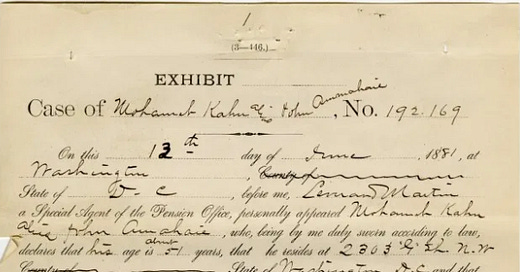 1
(3—446.)
EXHIBIT
Case of Mohamet Kahn alias John Ammahaie, No. 192.169
On this 13th day of June 1881, at
Washington, County of
State of D-C, before me, Leonard Martin
a Special Agent of the Pension Office, personally appeared Mohamet Kahn
alias John Ammahaie, who, being by me duly sworn according to law,
declares that his age is about 51 years, that he resides at 2303 G St. N.W
County of State of Washington D.C. and that